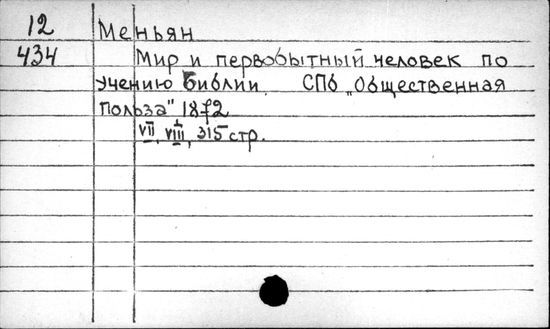 12 Меньян
434 Мир и первобытный человек по
учению Библии. СПб „Общественная
польза" 1872
VII, VIII, 315 стр.